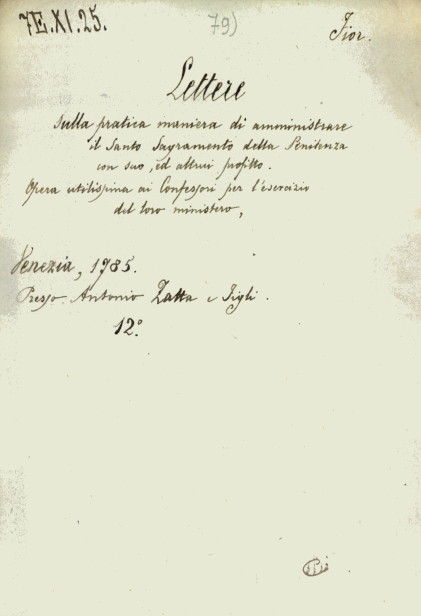 7E.XI.25. 79) Fior.
Lettere
sulla pratica maniera di amministrare
il Santo Sagramento della Penitenza
con suo, ed altrui profitto.
Opera utilissima ai Confessori per l'esercizio
del loro ministero,
Venezia, 1785.
Presso Antonio Zatta e Figli.
12°